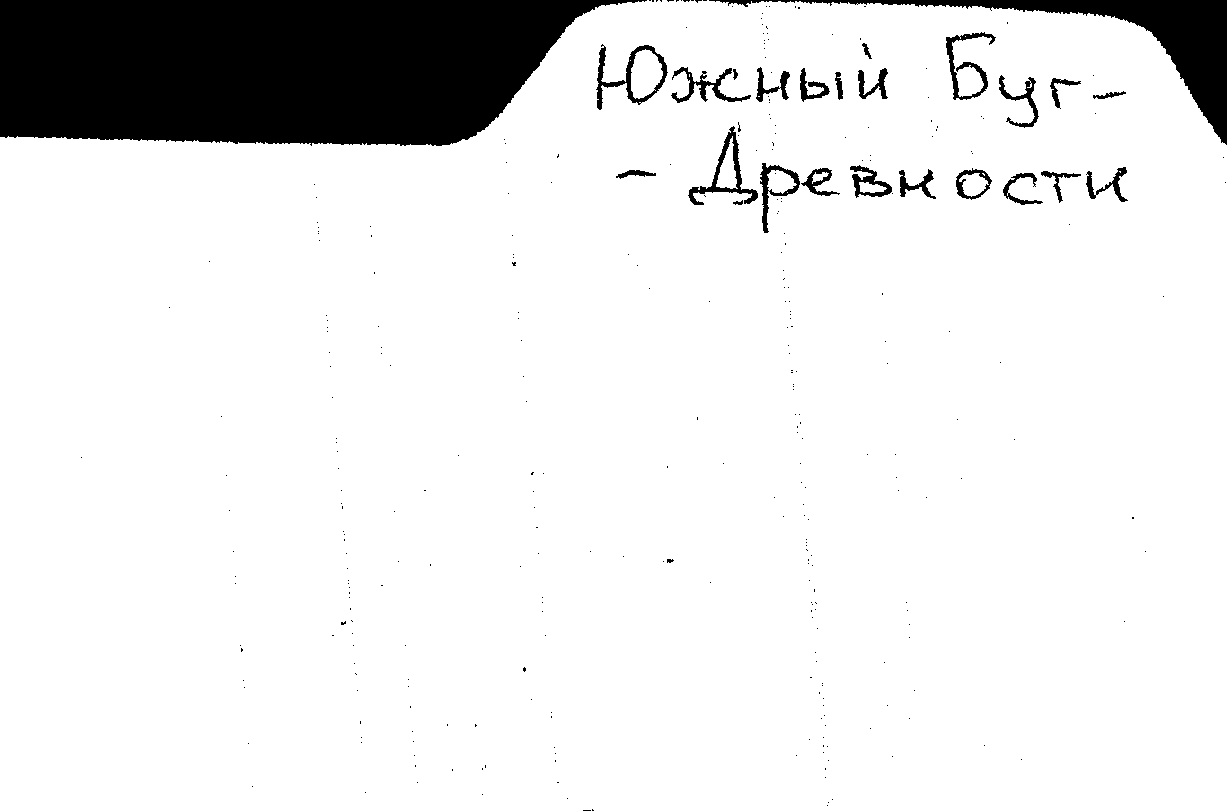 Южный Буг-
- Древности